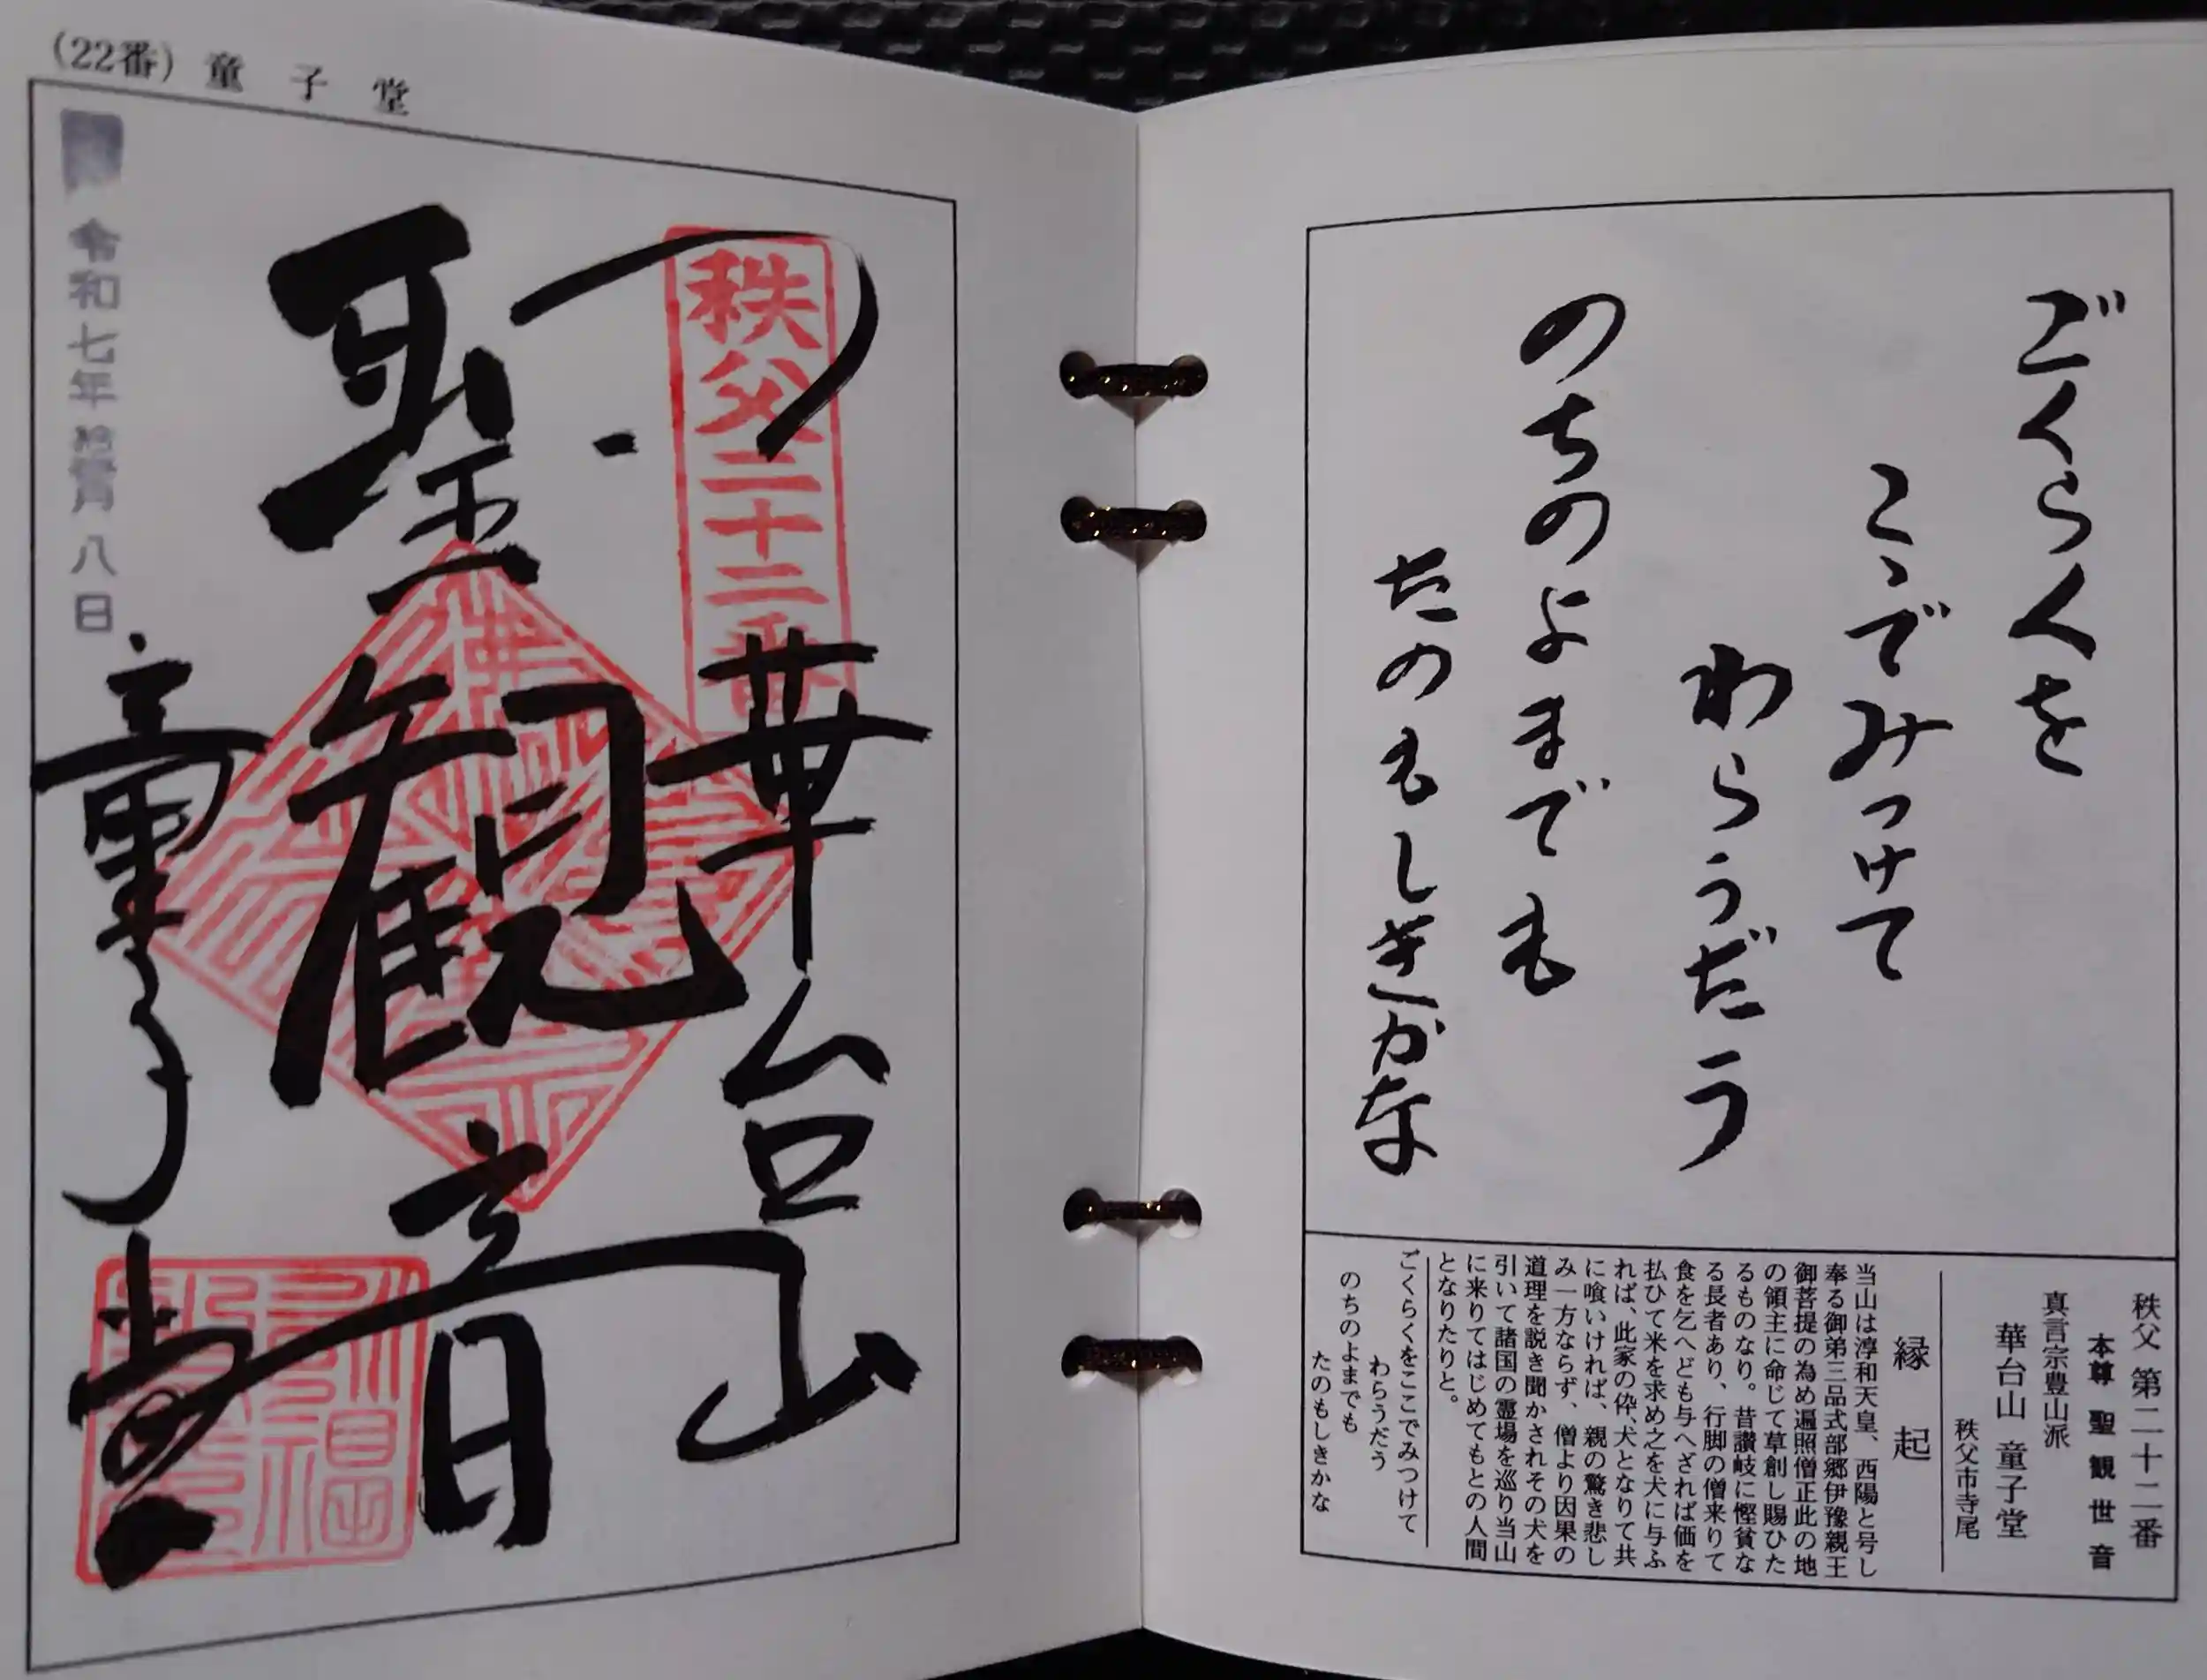 (22番) 童子堂
令和七年拾貳月八日
秩父二十二番
華台山
聖観音
童子堂
ごくらくを
こゝでみつけて
わらうだう
のちのよまでも
たのもしきかな
秩父 第二十二番
本尊 聖観世音
真言宗豊山派
華台山 童子堂
秩父市寺尾
縁起
当山は淳和天皇、西陽と号し
奉る御弟三品式部郷伊豫親王
御菩提の為め遍照僧正此の地
の領主に命じて草創し賜ひた
るものなり。昔讃岐に慳貧な
る長者あり、行脚の僧来りて
食を乞へども与へざれば価を
払ひて米を求め之を犬に与ふ
れば、此家の伜、犬となりて共
に喰いければ、親の驚き悲し
み一方ならず、僧より因果の
道理を説き聞かされその犬を
引いて諸国の霊場を巡り当山
に来りてはじめてもとの人間
となりたりと。
ごくらくをここでみつけて
わらうだう
のちのよまでも
たのもしきかな